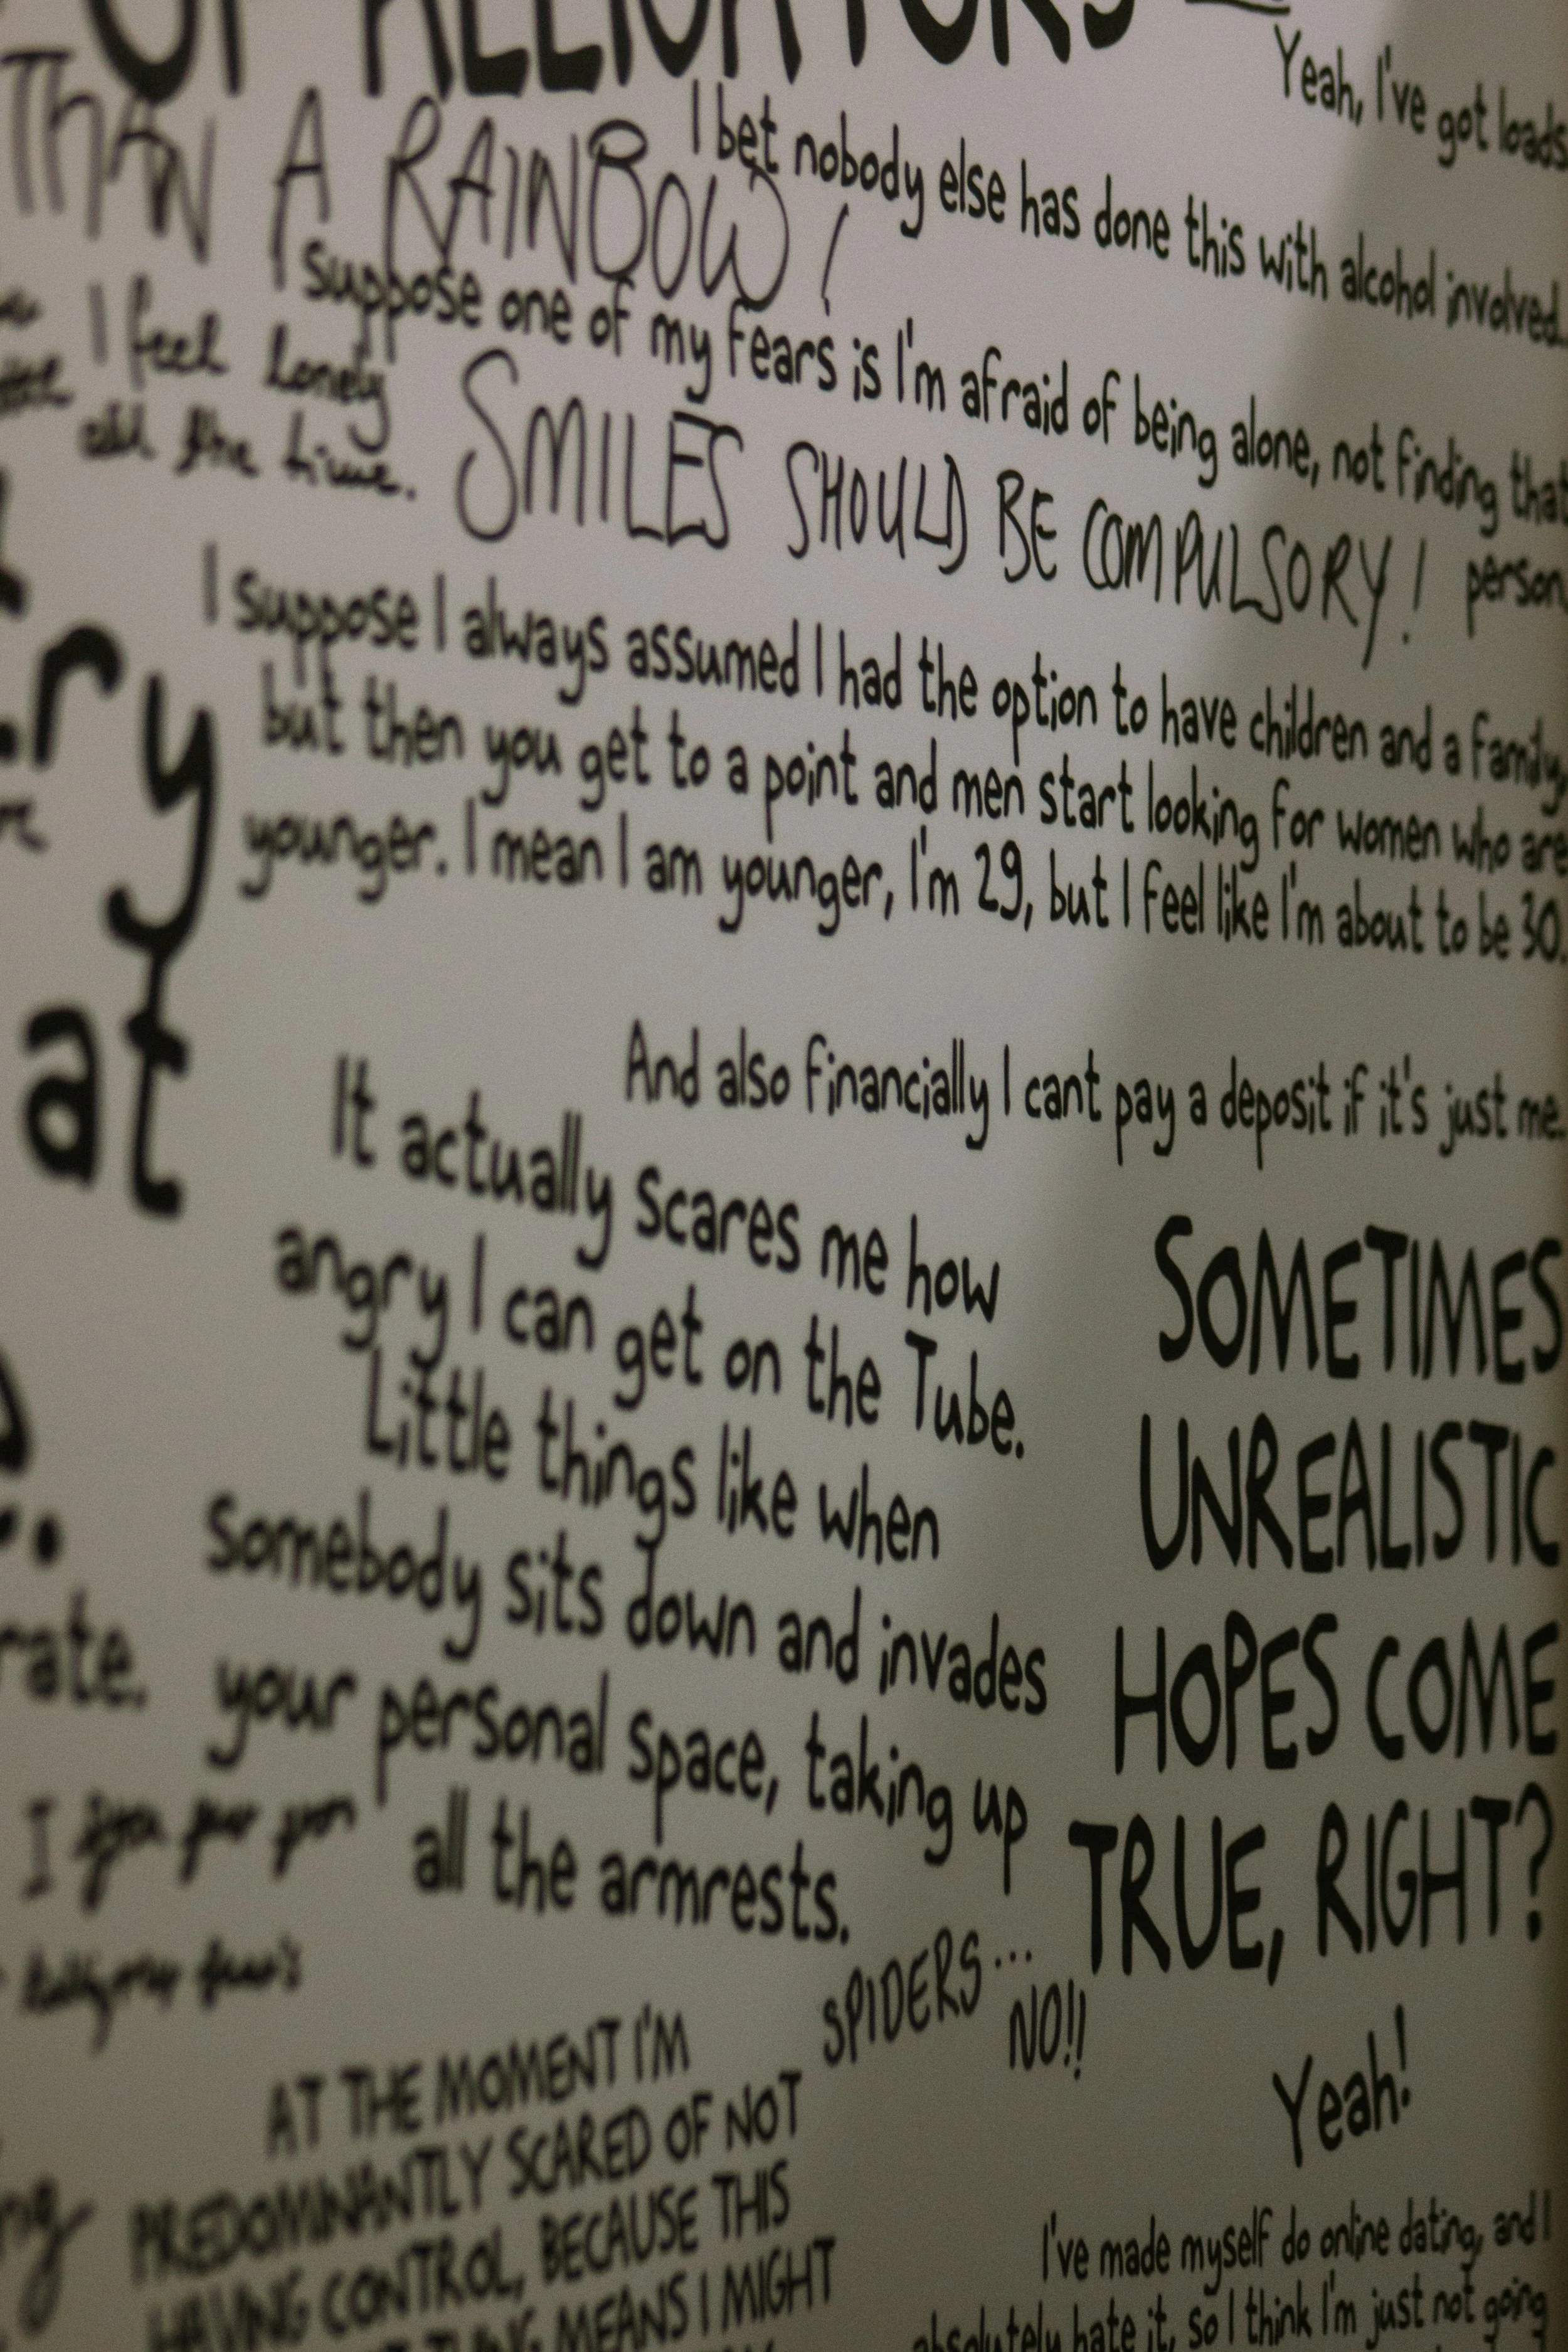 OF ALLIGATORS
Yeah, I've got loads
THAN A RAINBOW!
I bet nobody else has done this with alcohol involved.
I suppose one of my fears is I'm afraid of being alone, not finding that
person
I feel lonely
all the time.
SMILES SHOULD BE COMPULSORY!
I suppose I always assumed I had the option to have children and a family
but then you get to a point and men start looking for women who are
younger. I mean I am younger, I'm 29, but I feel like I'm about to be 30.
ry
at
And also financially I cant pay a deposit if it's just me.
It actually scares me how
angry I can get on the Tube.
Little things like when
somebody sits down and invades
your personal space, taking up
all the armrests.
rate.
SOMETIMES
UNREALISTIC
HOPES COME
TRUE, RIGHT?
SPIDERS...
NO!!
Yeah!
AT THE MOMENT I'M
PREDOMINANTLY SCARED OF NOT
HAVING CONTROL, BECAUSE THIS
MEANS I MIGHT
I've made myself do online dating, and I
absolutely hate it, so I think I'm just not going